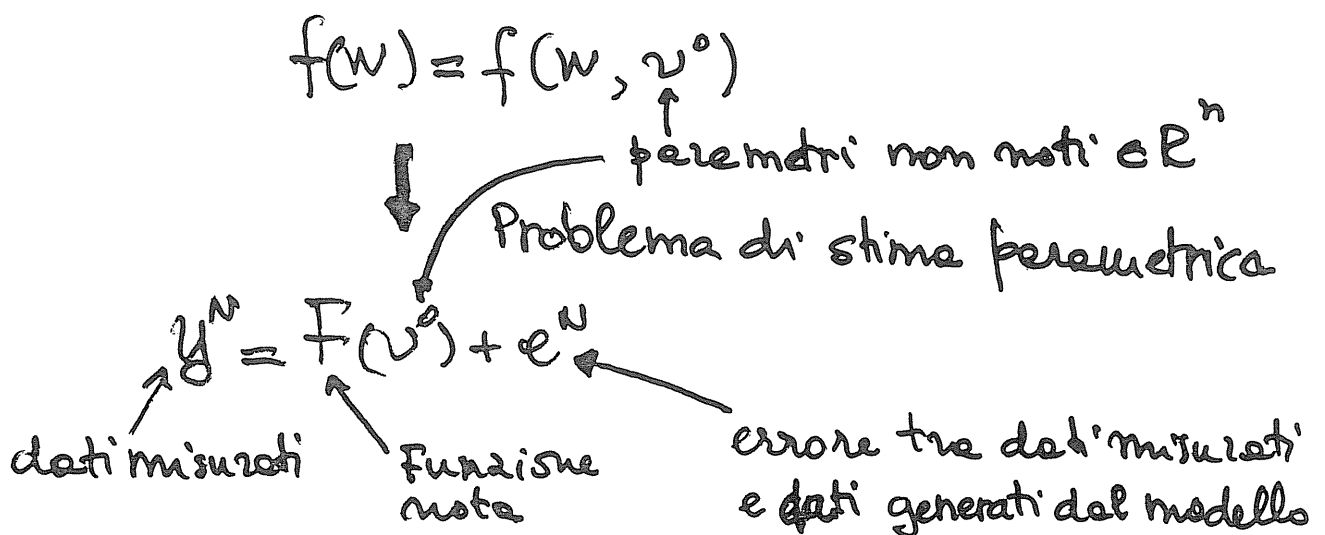 f(w) = f(w, v°)
parametri non noti ∈ R^n
Problema di stima parametrica
y^N = F(v°) + e^N
dati misurati
Funzione nota
errore tra dati misurati
e dati generati dal modello